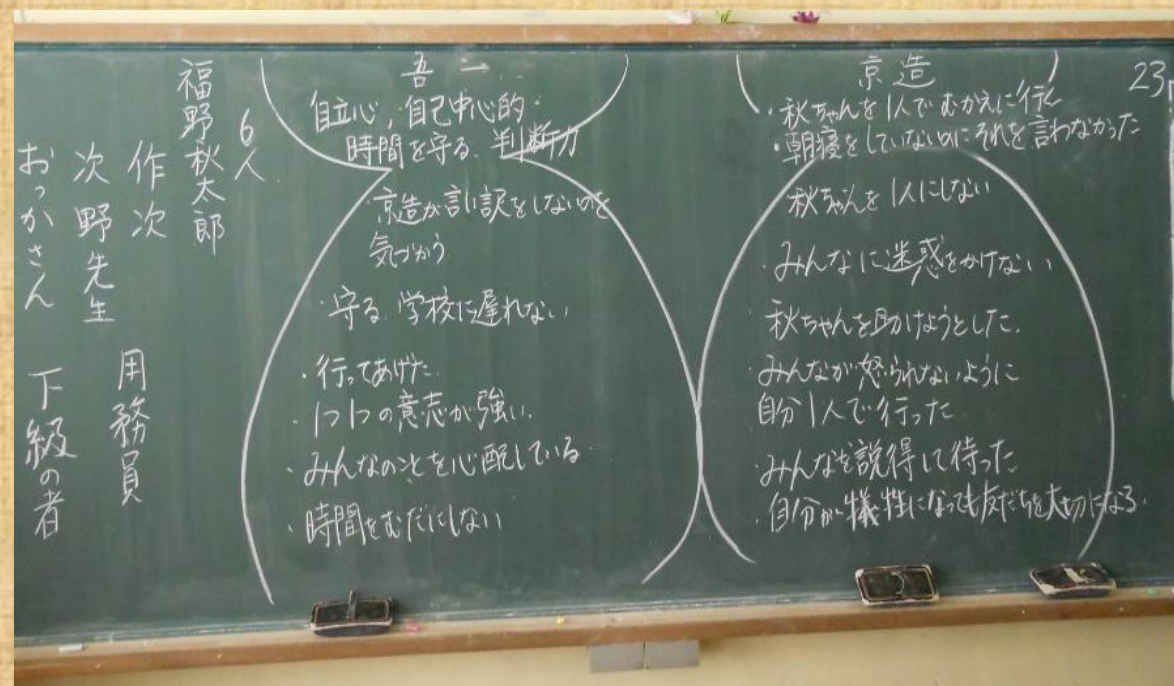 23
京造
・秋ちゃんを1人でむかえに行く
・朝寝をしていないのにそれを言わなかった
秋ちゃんを1人にしない
・みんなに迷惑をかけない
・秋ちゃんを助けようとした.
・みんなが怒られないように
自分1人で行った
・みんなを説得して待った
・自分が犠牲になっても友だちを大切になる
吾一
自立心,自己中心的・
時間を守る.判断力
・京造が言い訳をしないのを
気づかう
・守る.学校に遅れない
・行ってあげた.
・1つ1つの意志が強い.
・みんなのことを心配している
・時間をむだにしない
6人
福野秋太郎
作次 用務員
次野先生
おっかさん 下級の者